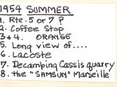 1954 SUMMER
1. Rte. 5 or 7 P
2. Coffee Stop
3+4. ORANGE
5. Long view of....
6. Lacoste
7. Decamping Cassis quarry
8. the "SAMSUN" Marseille